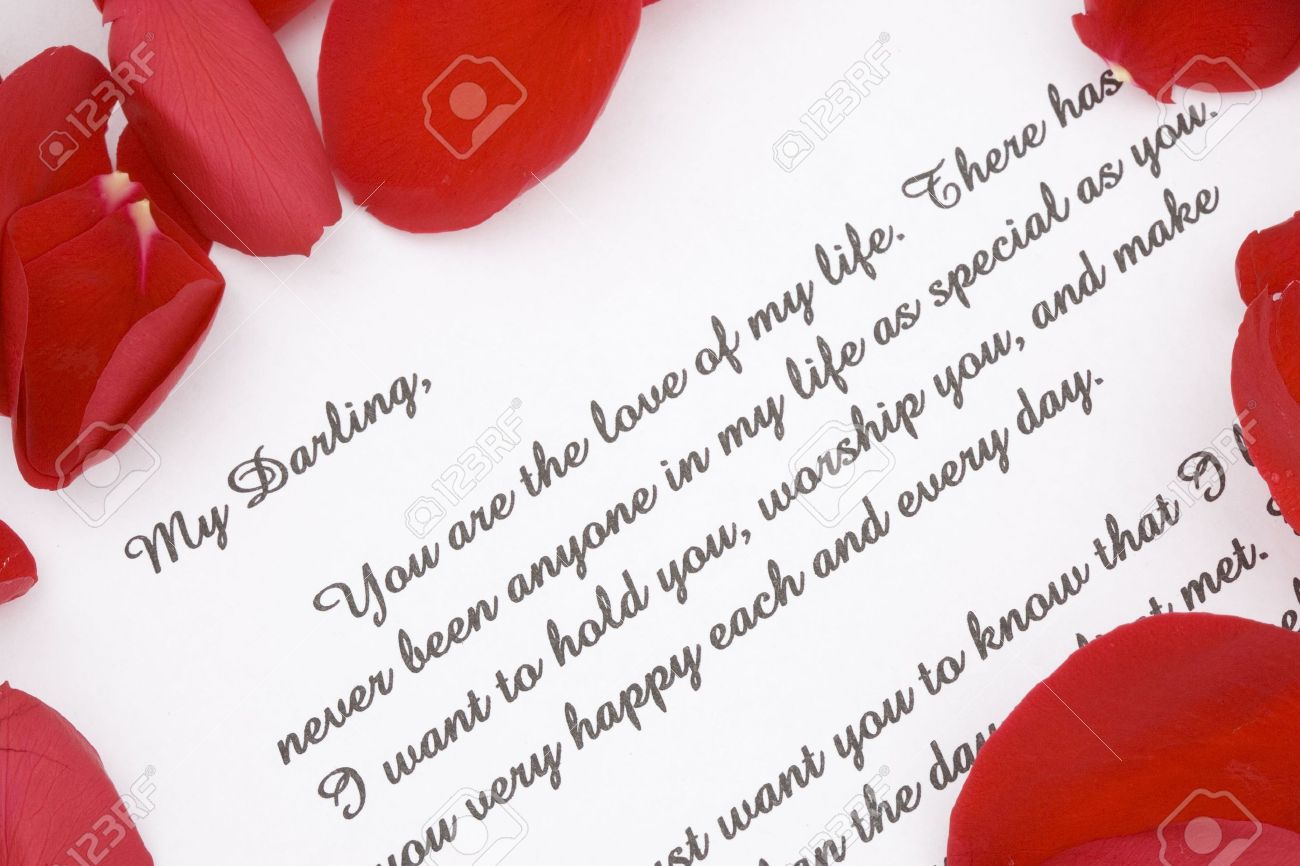 My Darling,
You are the love of my life. There has
never been anyone in my life as special as you.
I want to hold you, worship you, and make
you very happy each and every day.
want you to know that I
the day met.
123RF
123RF
123RF
123RF
123RF
123RF
123RF
123RF
123RF
123RF